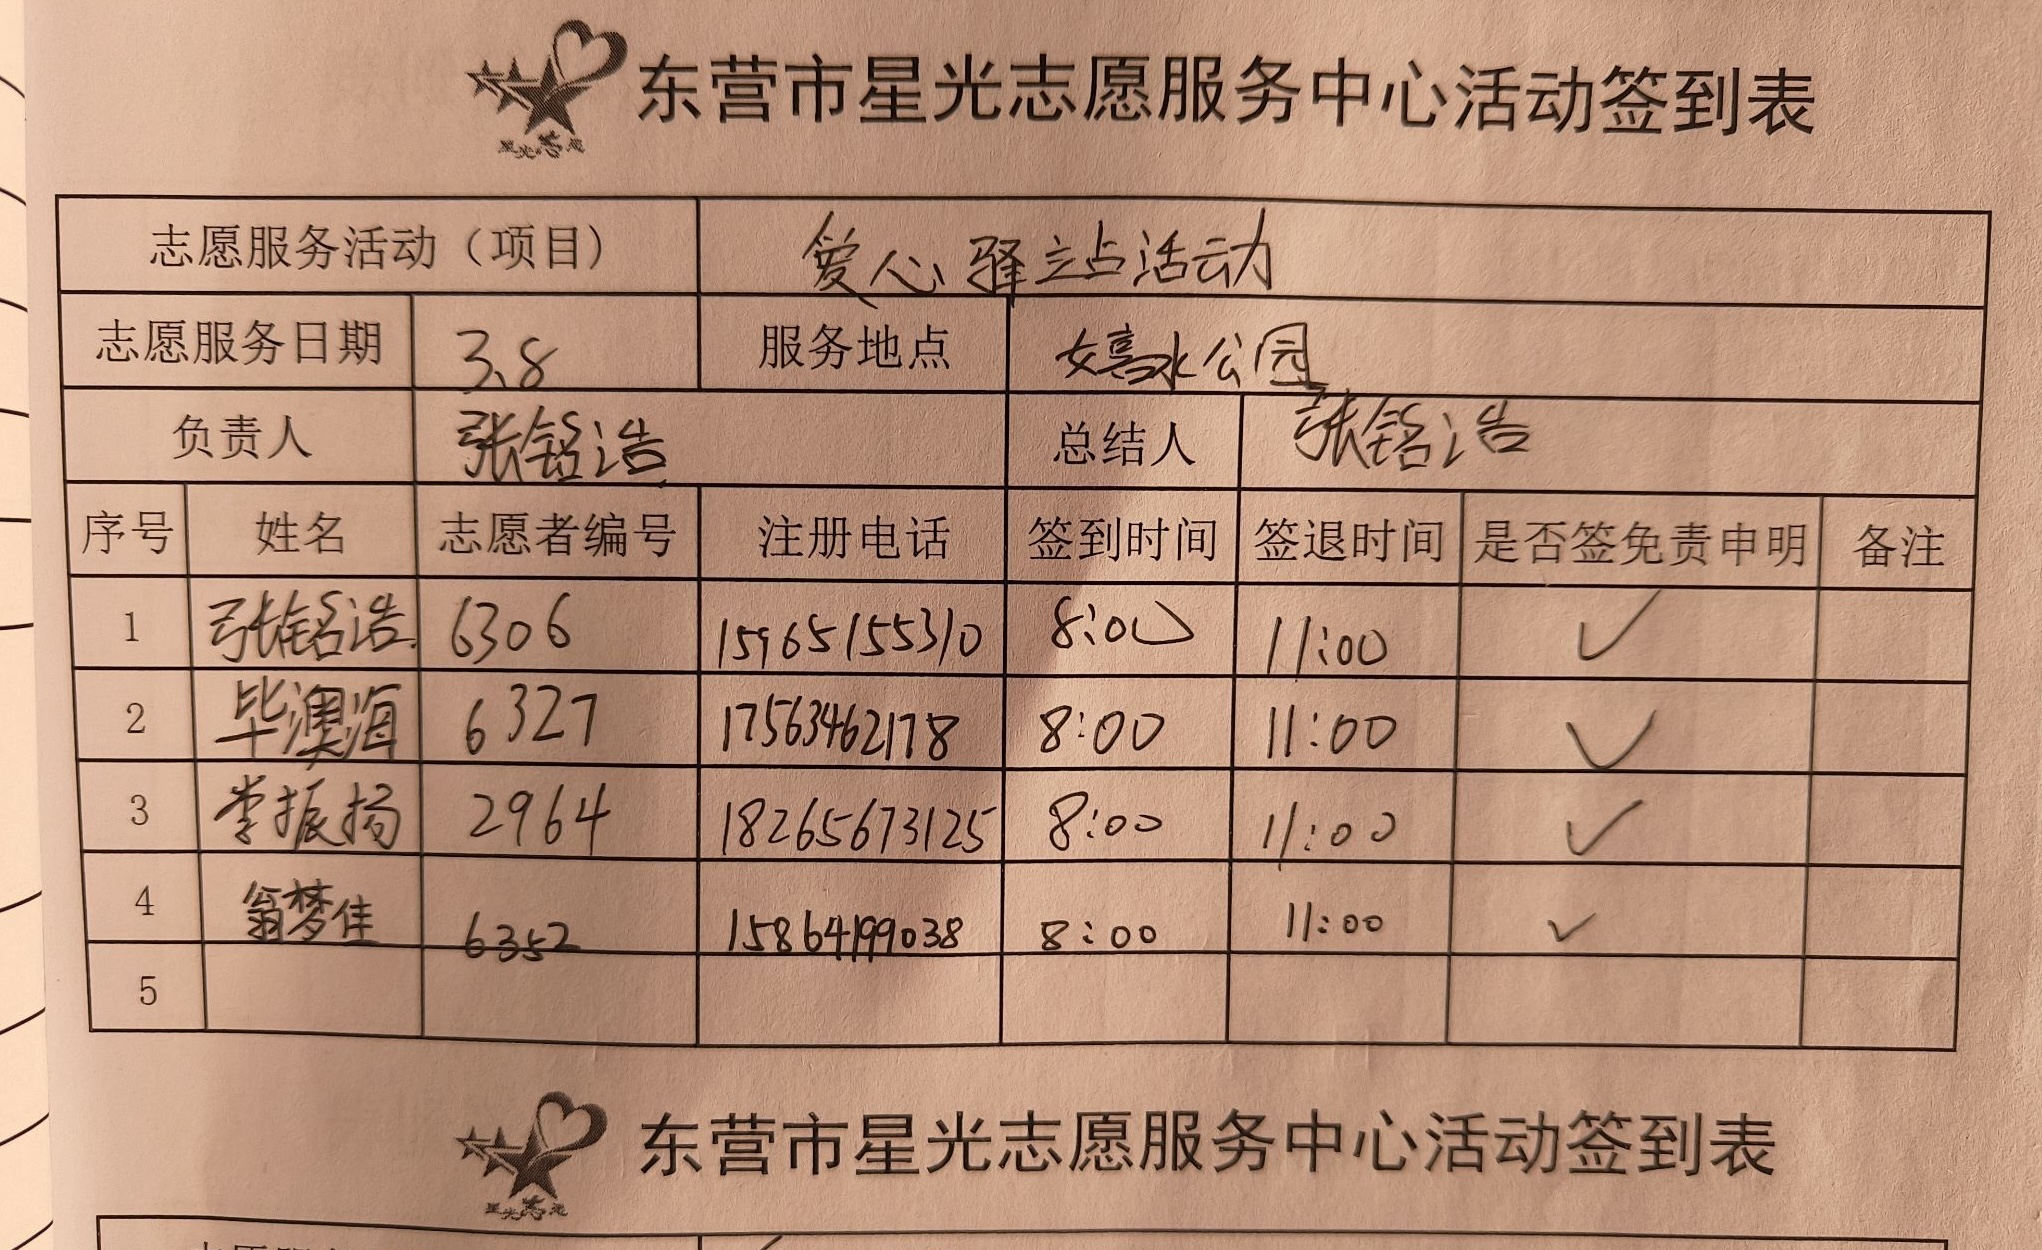 东营市星光志愿服务中心活动签到表
星光志愿
志愿服务活动（项目） 爱心驿站活动
志愿服务日期 3.8 服务地点 嬉水公园
负责人 张铭浩 总结人 张铭浩
序号 姓名 志愿者编号 注册电话 签到时间 签退时间 是否签免责申明 备注
1 张铭浩 6306 15965155310 8:00 11:00 ✓
2 毕澳海 6327 17563462178 8:00 11:00 ✓
3 李振扬 2964 18265673125 8:00 11:00 ✓
4 翁梦佳 6352 15864199038 8:00 11:00 ✓
5
东营市星光志愿服务中心活动签到表
星光志愿